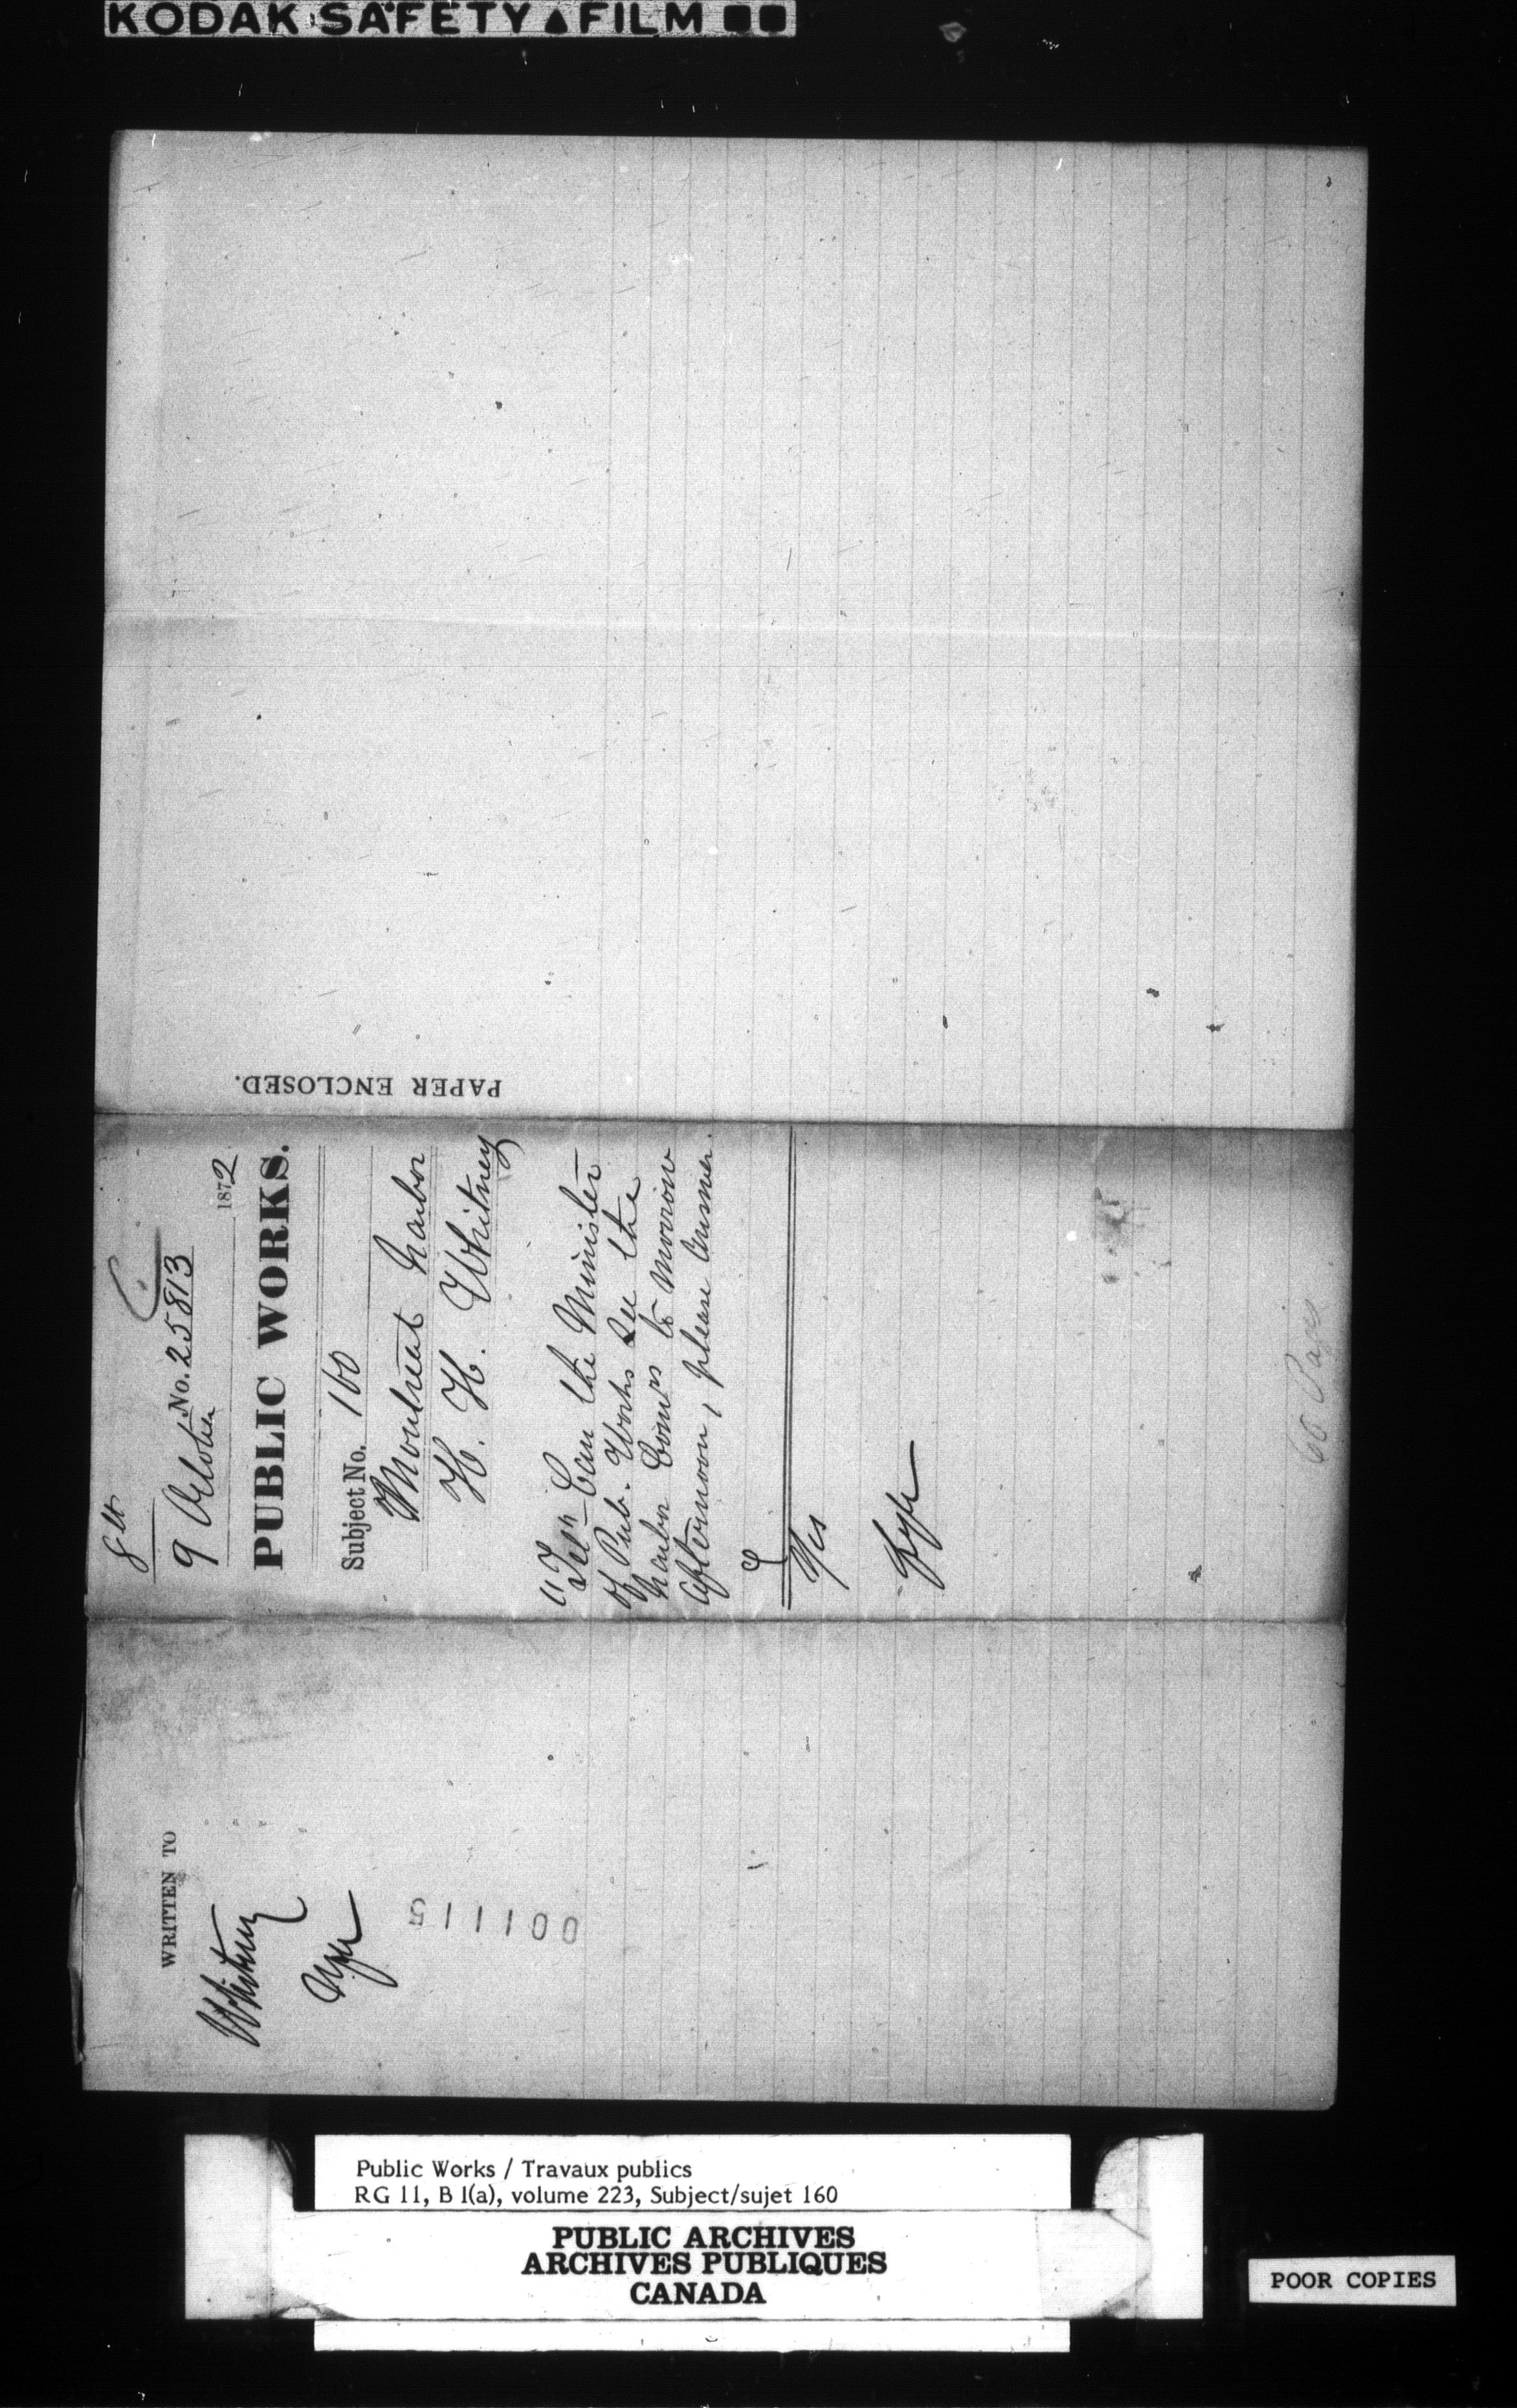 KODAK SAFETY FILM
8th
No. 25813
9 October 1872
PUBLIC WORKS.
Subject No. 160
Montreal Harbor
H. H. Whitney
"Tel" - Can the Minister
of Pub. Works see the
Harbor Comrs to morrow
afternoon, please answer.
Yes
PAPER ENCLOSED.
WRITTEN TO
Whitney
001115
Public Works / Travaux publics
RG 11, B 1(a), volume 223, Subject/sujet 160
PUBLIC ARCHIVES
ARCHIVES PUBLIQUES
CANADA
POOR COPIES